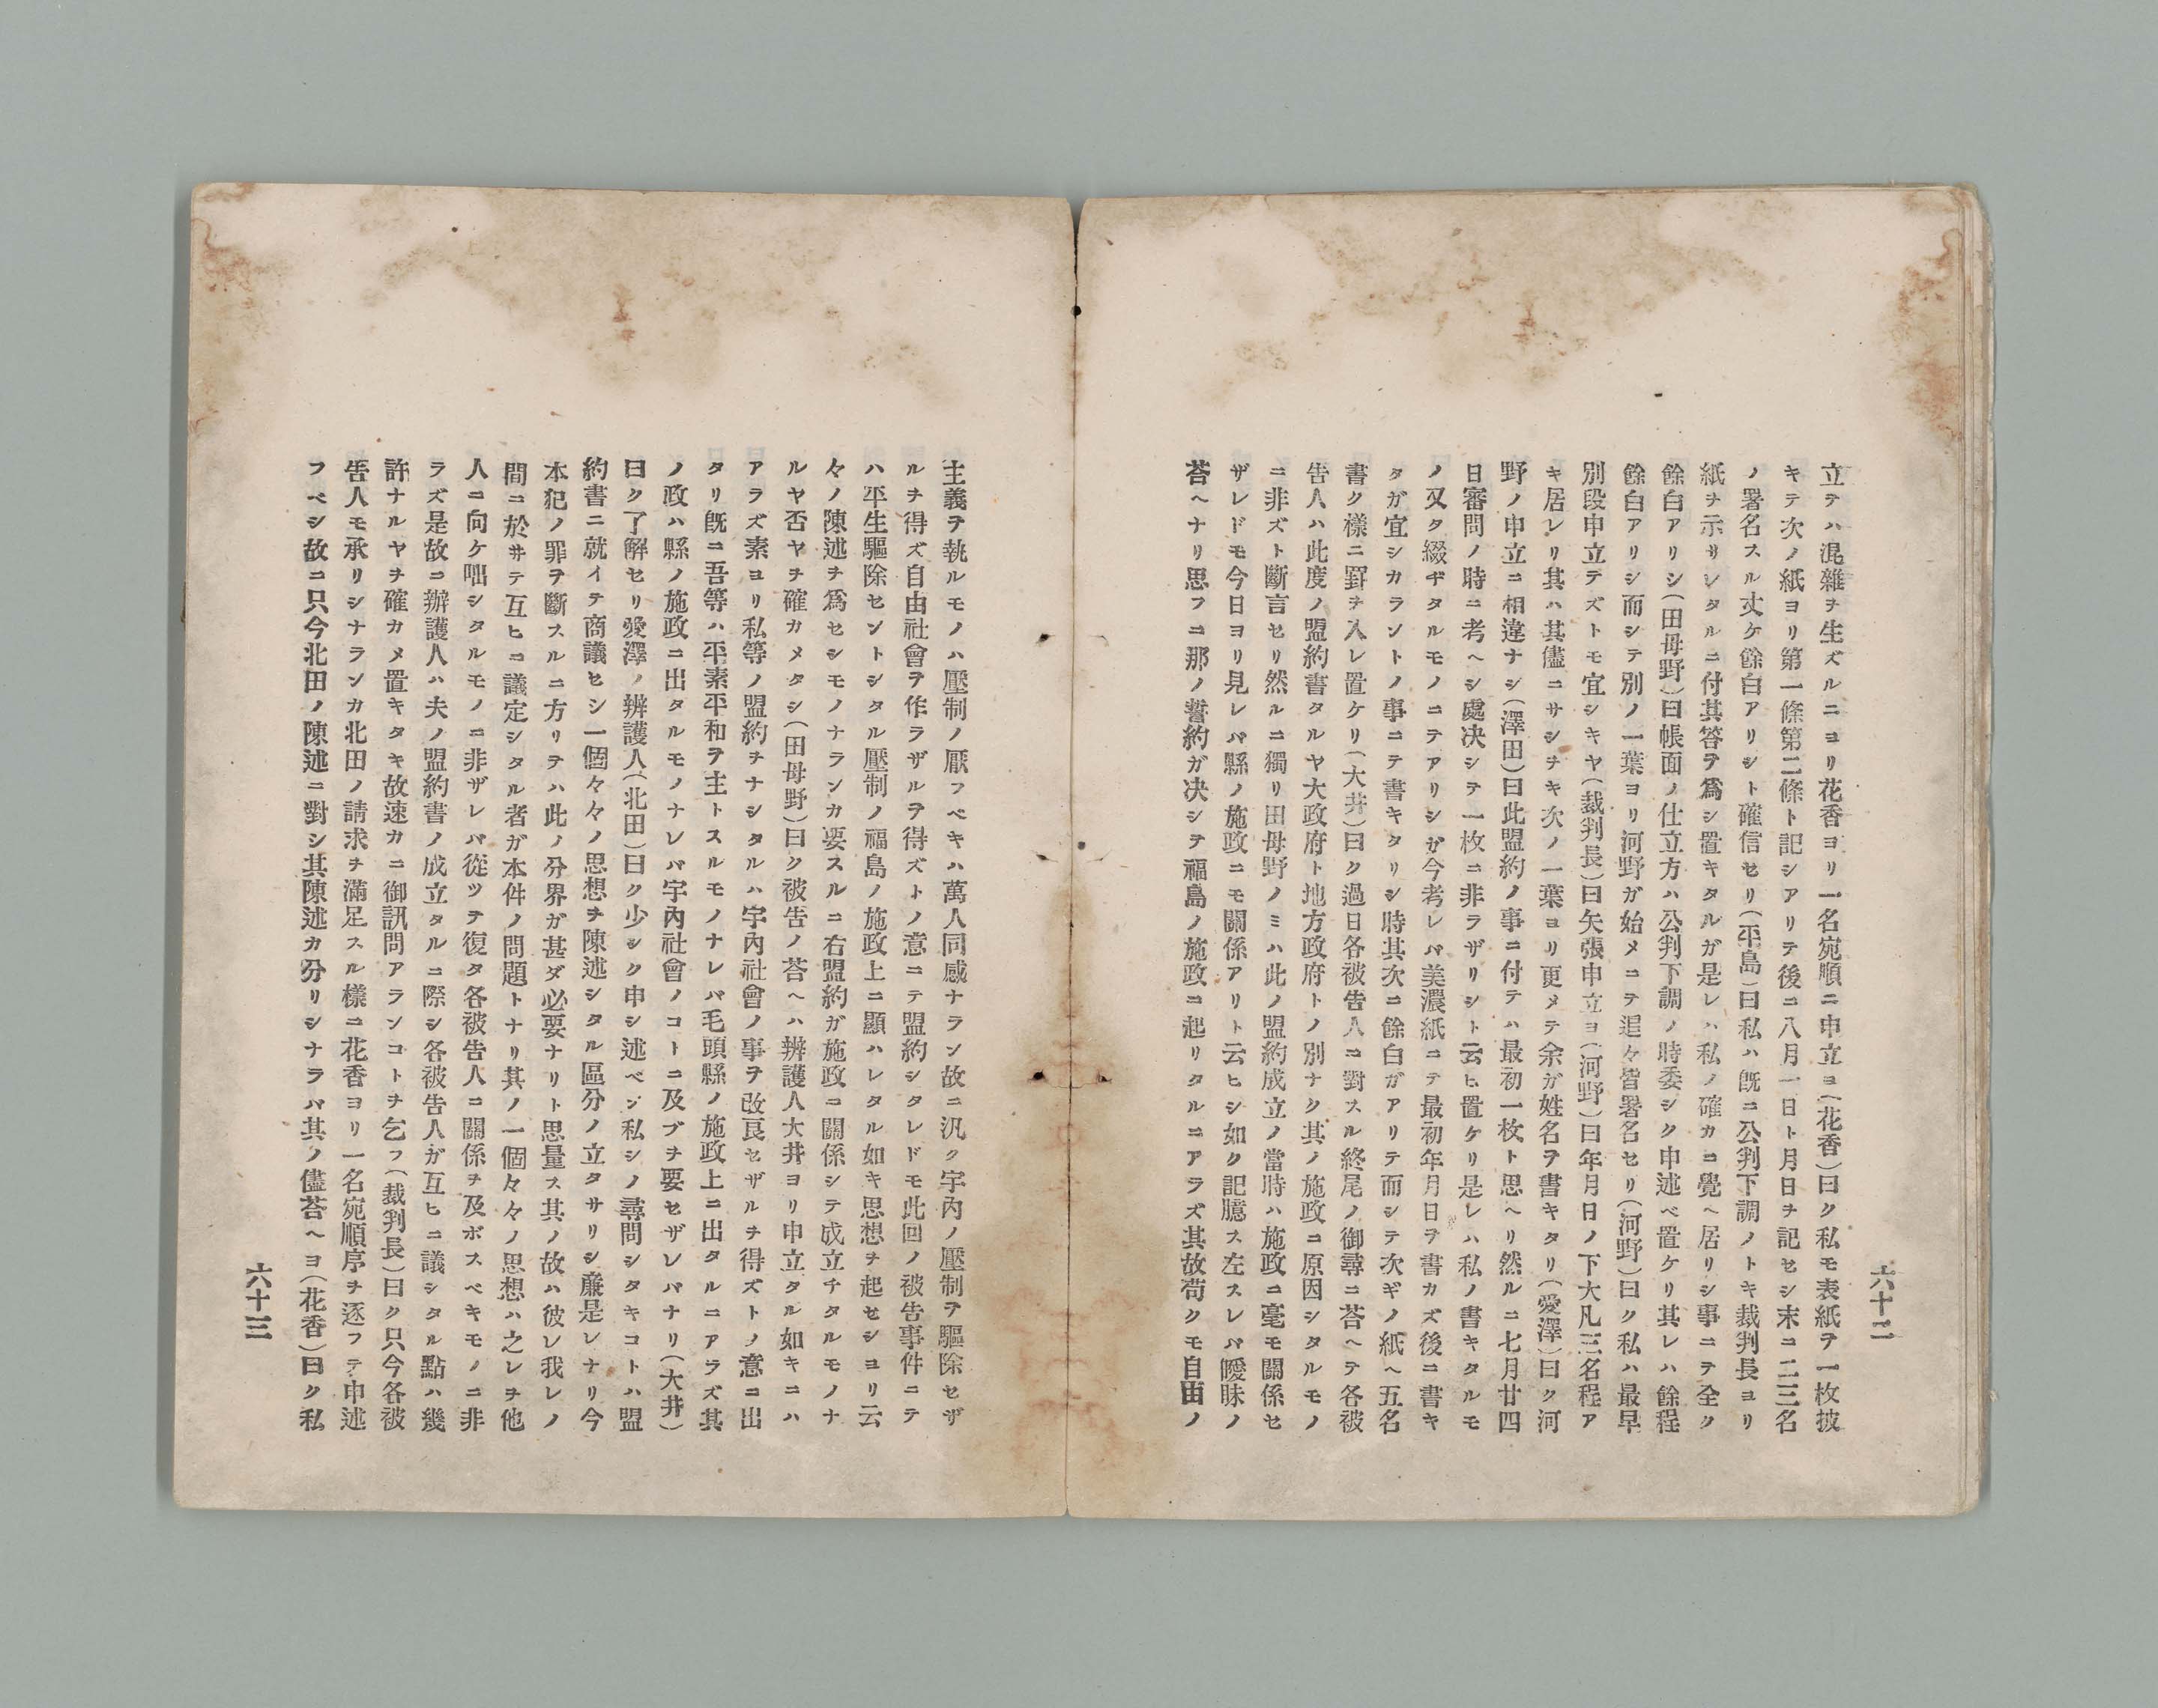 六十二
立テハ混雜ヲ生ズルニヨリ花香ヨリ一名宛順ニ申立ヨ(花香)曰ク私モ表紙ヲ一枚披
キテ次ノ紙ヨリ第一條第二條ト記シアリテ後ニ八月一日ト月日ヲ記セシ末ニ二三名
ノ署名スル丈ケ餘白アリシト確信セリ(平島)曰私ハ既ニ公判下調ノトキ裁判長ヨリ
紙ヲ示サレタルニ付其答ヲ爲シ置キタルガ是レハ私ノ確カニ覺ヘ居リシ事ニテ全ク
餘白アリシ(田母野)曰帳面ノ仕立方ハ公判下調ノ時委シク申述ベ置ケリ其レハ餘程
餘白アリシ而シテ別ノ一葉ヨリ河野ガ始メニテ追々皆署名セリ(河野)曰ク私ハ最早
別段申立テズトモ宜シキヤ(裁判長)曰矢張申立ヨ(河野)曰年月日ノ下大凡三名程ア
キ居レリ其ハ其儘ニサシヲキ次ノ一葉ヨリ更メテ余ガ姓名ヲ書キタリ(愛澤)曰ク河
野ノ申立ニ相違ナシ(澤田)曰此盟約ノ事ニ付テハ最初一枚ト思ヘリ然ルニ七月廿四
日審問ノ時ニ考ヘシ處决シテ一枚ニ非ラザリシト云ヒ置ケリ是レハ私ノ書キタルモ
ノ又タ綴ヂタルモノニテアリシガ今考レバ美濃紙ニテ最初年月日ヲ書カズ後ニ書キ
タガ宜シカラントノ事ニテ書キタリシ時其次ニ餘白ガアリテ而シテ次ギノ紙ヘ五名
書ク樣ニ罫ヲ入レ置ケリ(大井)曰ク過日各被告人ニ對スル終尾ノ御尋ニ荅ヘテ各被
告人ハ此度ノ盟約書タルヤ大政府ト地方政府トノ別ナク其ノ施政ニ原因シタルモノ
ニ非ズト斷言セリ然ルニ獨リ田母野ノミハ此ノ盟約成立ノ當時ハ施政ニ毫モ關係セ
ザレドモ今日ヨリ見レバ縣ノ施政ニモ關係アリト云ヒシ如ク記臆ス左スレバ曖昧ノ
荅ヘナリ思フニ那ノ誓約ガ决シテ福島ノ施政ニ起リタルニアラズ其故苟クモ自由ノ
主義ヲ執ルモノハ壓制ノ厭フベキハ萬人同感ナラン故ニ汎ク宇内ノ壓制ヲ驅除セザ
ルヲ得ズ自由社會ヲ作ラザルヲ得ズトノ意ニテ盟約シタレドモ此回ノ被告事件ニテ
ハ平生驅除セントシタル壓制ノ福島ノ施政上ニ顯ハレタル如キ思想ヲ起セシヨリ云
々ノ陳述ヲ爲セシモノナランカ要スルニ右盟約ガ施政ニ關係シテ成立チタルモノナ
ルヤ否ヤヲ確カメタシ(田母野)曰ク被告ノ荅ヘハ辨護人大井ヨリ申立タル如キニハ
アラズ素ヨリ私等ノ盟約ヲナシタルハ宇內社會ノ事ヲ改良セザルヲ得ズトノ意ニ出
タリ旣ニ吾等ハ平素平和ヲ主トスルモノナレバ毛頭縣ノ施政上ニ出タルニアラズ其
ノ政ハ縣ノ施政ニ出タルモノナレバ宇內社會ノコトニ及ブヲ要セザレバナリ(大井)
曰ク了解セリ愛澤ノ辨護人(北田)曰ク少シク申シ述ベン私シノ尋問シタキコトハ盟
約書ニ就イテ商議セシ一個々々ノ思想ヲ陳述シタル區分ノ立タサリシ廉是レナリ今
本犯ノ罪ヲ斷スルニ方リテハ此ノ分界ガ甚ダ必要ナリト思量ス其ノ故ハ彼レ我レノ
間ニ於サテ互ヒニ議定シタル者ガ本件ノ問題トナリ其ノ一個々々ノ思想ハ之レヲ他
人ニ向ケ咄シタルモノニ非ザレバ從ツテ復タ各被告人ニ關係ヲ及ボスベキモノニ非
ラズ是故ニ辨護人ハ夫ノ盟約書ノ成立タルニ際シ各被告人ガ互ヒニ議シタル點ハ幾
許ナルヤヲ確カメ置キタキ故速カニ御訊問アランコトヲ乞フ(裁判長)曰ク只今各被
告人モ承リシナランカ北田ノ請求ヲ滿足スル樣ニ花香ヨリ一名宛順序ヲ逐フテ申述
フベシ故ニ只今北田ノ陳述ニ對シ其陳述カ分リシナラバ其ノ儘荅ヘヨ(花香)曰ク私
六十三